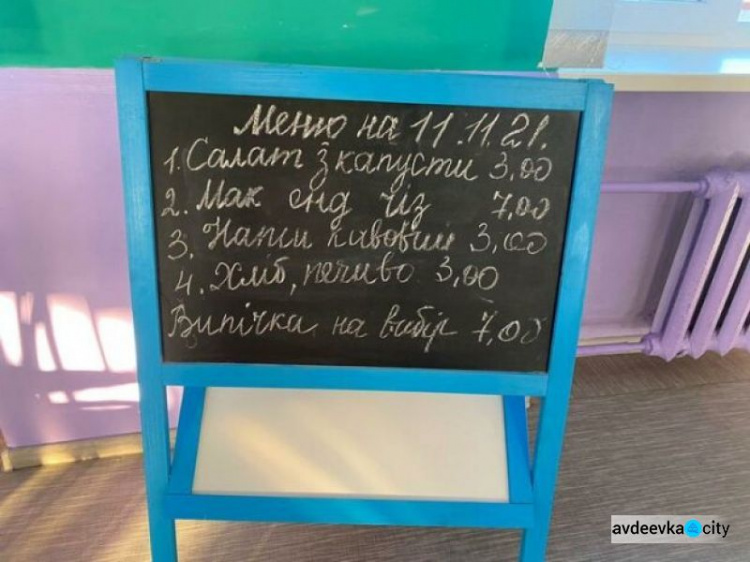 Меню на 11.11.21.
1. Салат з капусти 3,00
2. Мак енд чіз 7,00
3. Напій кавовий 3,00
4. Хліб, печиво 3,00
Випічка на вибір 7,00
avdeevka.city